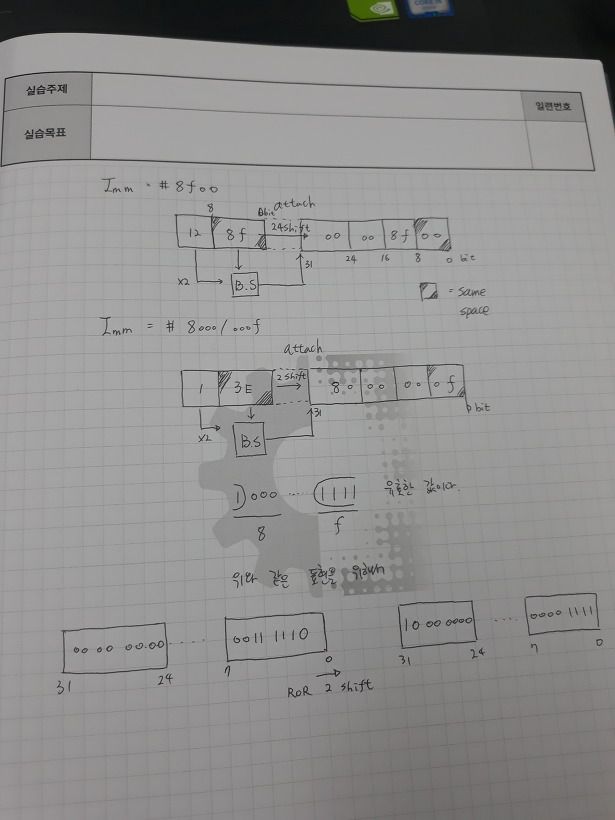 실습주제
일련번호
실습목표
Imm = #8f00
8
0bit
attach
12
8f
24shift
00
00
8f
00
31
24
16
8
0 bit
x2
B.S
= same space
Imm = # 8000/000f
attach
1
3E
2 shift
80
00
00
0f
31
0 bit
x2
B.S
1000 ...... 1111
유효한 값이다.
8
f
위와 같은 표현을 위해서
00 00 00.00
......
0011 1110
10 00 0000
.....
0000 1111
31
24
7
0
31
24
7
0
RoR 2 shift